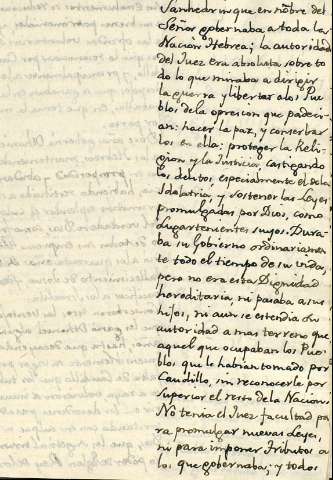 Sanhedrin que en nõbre del
Señor gobernaba a toda la
Nacion Hebrea; la autoridad
del Juez era absoluta sobre to
do lo que miraba a dirigir
la guerra y libertar a los Pue
blos de la opresion que padeci-
an: hacer la paz, y conserbar
los en ella: proteger la Reli-
gion y la Justicia, castigando
los delitos, especialmente el de la
Idolatria, y sostener las Leyes
promulgadas por Dios, como
Lugartenientes suyos. Dura-
ba su Gobierno ordinariamen
te todo el tiempo de su vida,
pero no era esta Dignidad
hereditaria, ni pasaba a sus
hijos, ni aun se estendia su
autoridad a mas terreno que
aquel que ocupaban los Pue
blos que le habian tomado por
Caudillo, sin reconocerle por
Superior el resto de la Nacion.
No tenia el Juez facultad pa
ra promulgar nuevas Leyes,
ni para imponer Tributos a
los que gobernaba; y todos